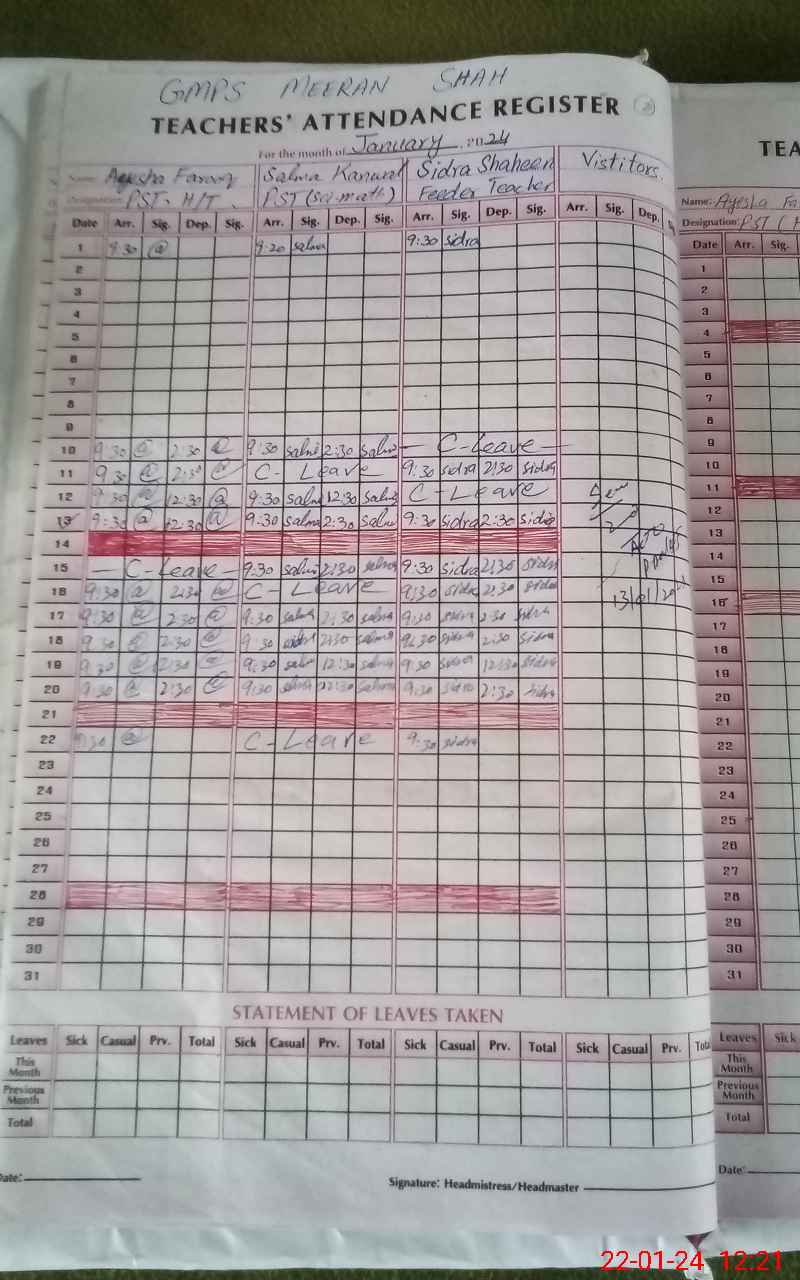 GMPS MEERAN SHAH
TEACHERS' ATTENDANCE REGISTER
For the month of January, 2024
Name: Ayesha Farooq Salma Kanwal Sidra Shaheen Vistitors.
Designation: PST. H/T. PST (sci-math) Feeder Teacher
Date Arr. Sig. Dep. Sig. Arr. Sig. Dep. Sig. Arr. Sig. Dep. Sig. Arr. Sig. Dep.
1 9:30 @ 9:20 salma 9:30 sidra
2
3
4
5
6
7
8
9
10 9:30 @ 2:30 @ 9:30 salma 2:30 salma — C-Leave —
11 9:30 @ 2:30 @ C- Leave 9:30 sidra 2:30 sidra
12 9:30 @ 12:30 @ 9:30 salma 12:30 salma C-Leave
13 9:30 @ 2:30 @ 9:30 salma 2:30 salma 9:30 sidra 2:30 sidra
14
15 — C-Leave — 9:30 salma 2:30 salma 9:30 sidra 2:30 sidra
16 9:30 @ 2:30 @ C- Leave 9:30 sidra 2:30 sidra
13/01/2024
17 9:30 @ 2:30 @ 9:30 salma 2:30 salma 9:30 sidra 2:30 sidra
18 9:30 @ 2:30 @ 9:30 2:30 salma 9:30 sidra 2:30 sidra
19 9:30 @ 12:30 @ 9:30 salma 12:30 salma 9:30 sidra 12:30 sidra
20 9:30 @ 2:30 @ 9:30 salma 2:30 salma 9:30 sidra 2:30 sidra
21
22 9:30 @ C-Leave 9:30 sidra
23
24
25
26
27
28
29
30
31
STATEMENT OF LEAVES TAKEN
Leaves Sick Casual Prv. Total Sick Casual Prv. Total Sick Casual Prv. Total Sick Casual Prv.
This Month
Previous Month
Total
Date:
Signature: Headmistress/Headmaster
TEA
Name: Ayesha Fa
Designation: PST (H
Date Arr. Sig.
1
2
3
4
5
6
7
8
9
10
11
12
13
14
15
16
17
18
19
20
21
22
23
24
25
26
27
28
29
30
31
Leaves Sick
This Month
Previous Month
Total
Date:
22-01-24 12:21